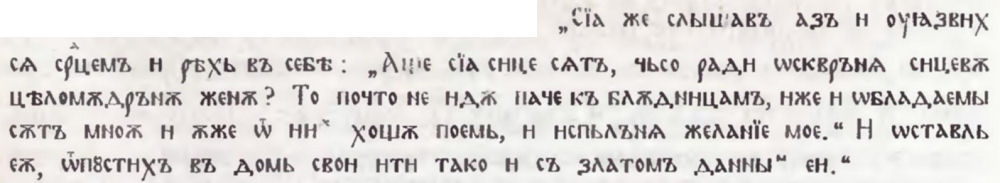 „Сїа же слышавъ азъ и оуꙗзвих
сѧ срⷣцемъ и рѣхь въ себѣ : „Аще сїа сице сѧтъ, чьсо ради ѡсквръня сицевѫ
цѣломѫдрънѫ женѫ? То почто не идѫ паче къ блѫдницамъ, иже и ѡбладаемы
сѫтъ мноѫ и ѧже ѿ ниⷯ хощѫ поемь, и испльънѧ желанїе мое.“ И ѡставль
еѫ, ѿпꙋстихъ въ домь свои ити тако и съ златомъ данныⷨ еи.“